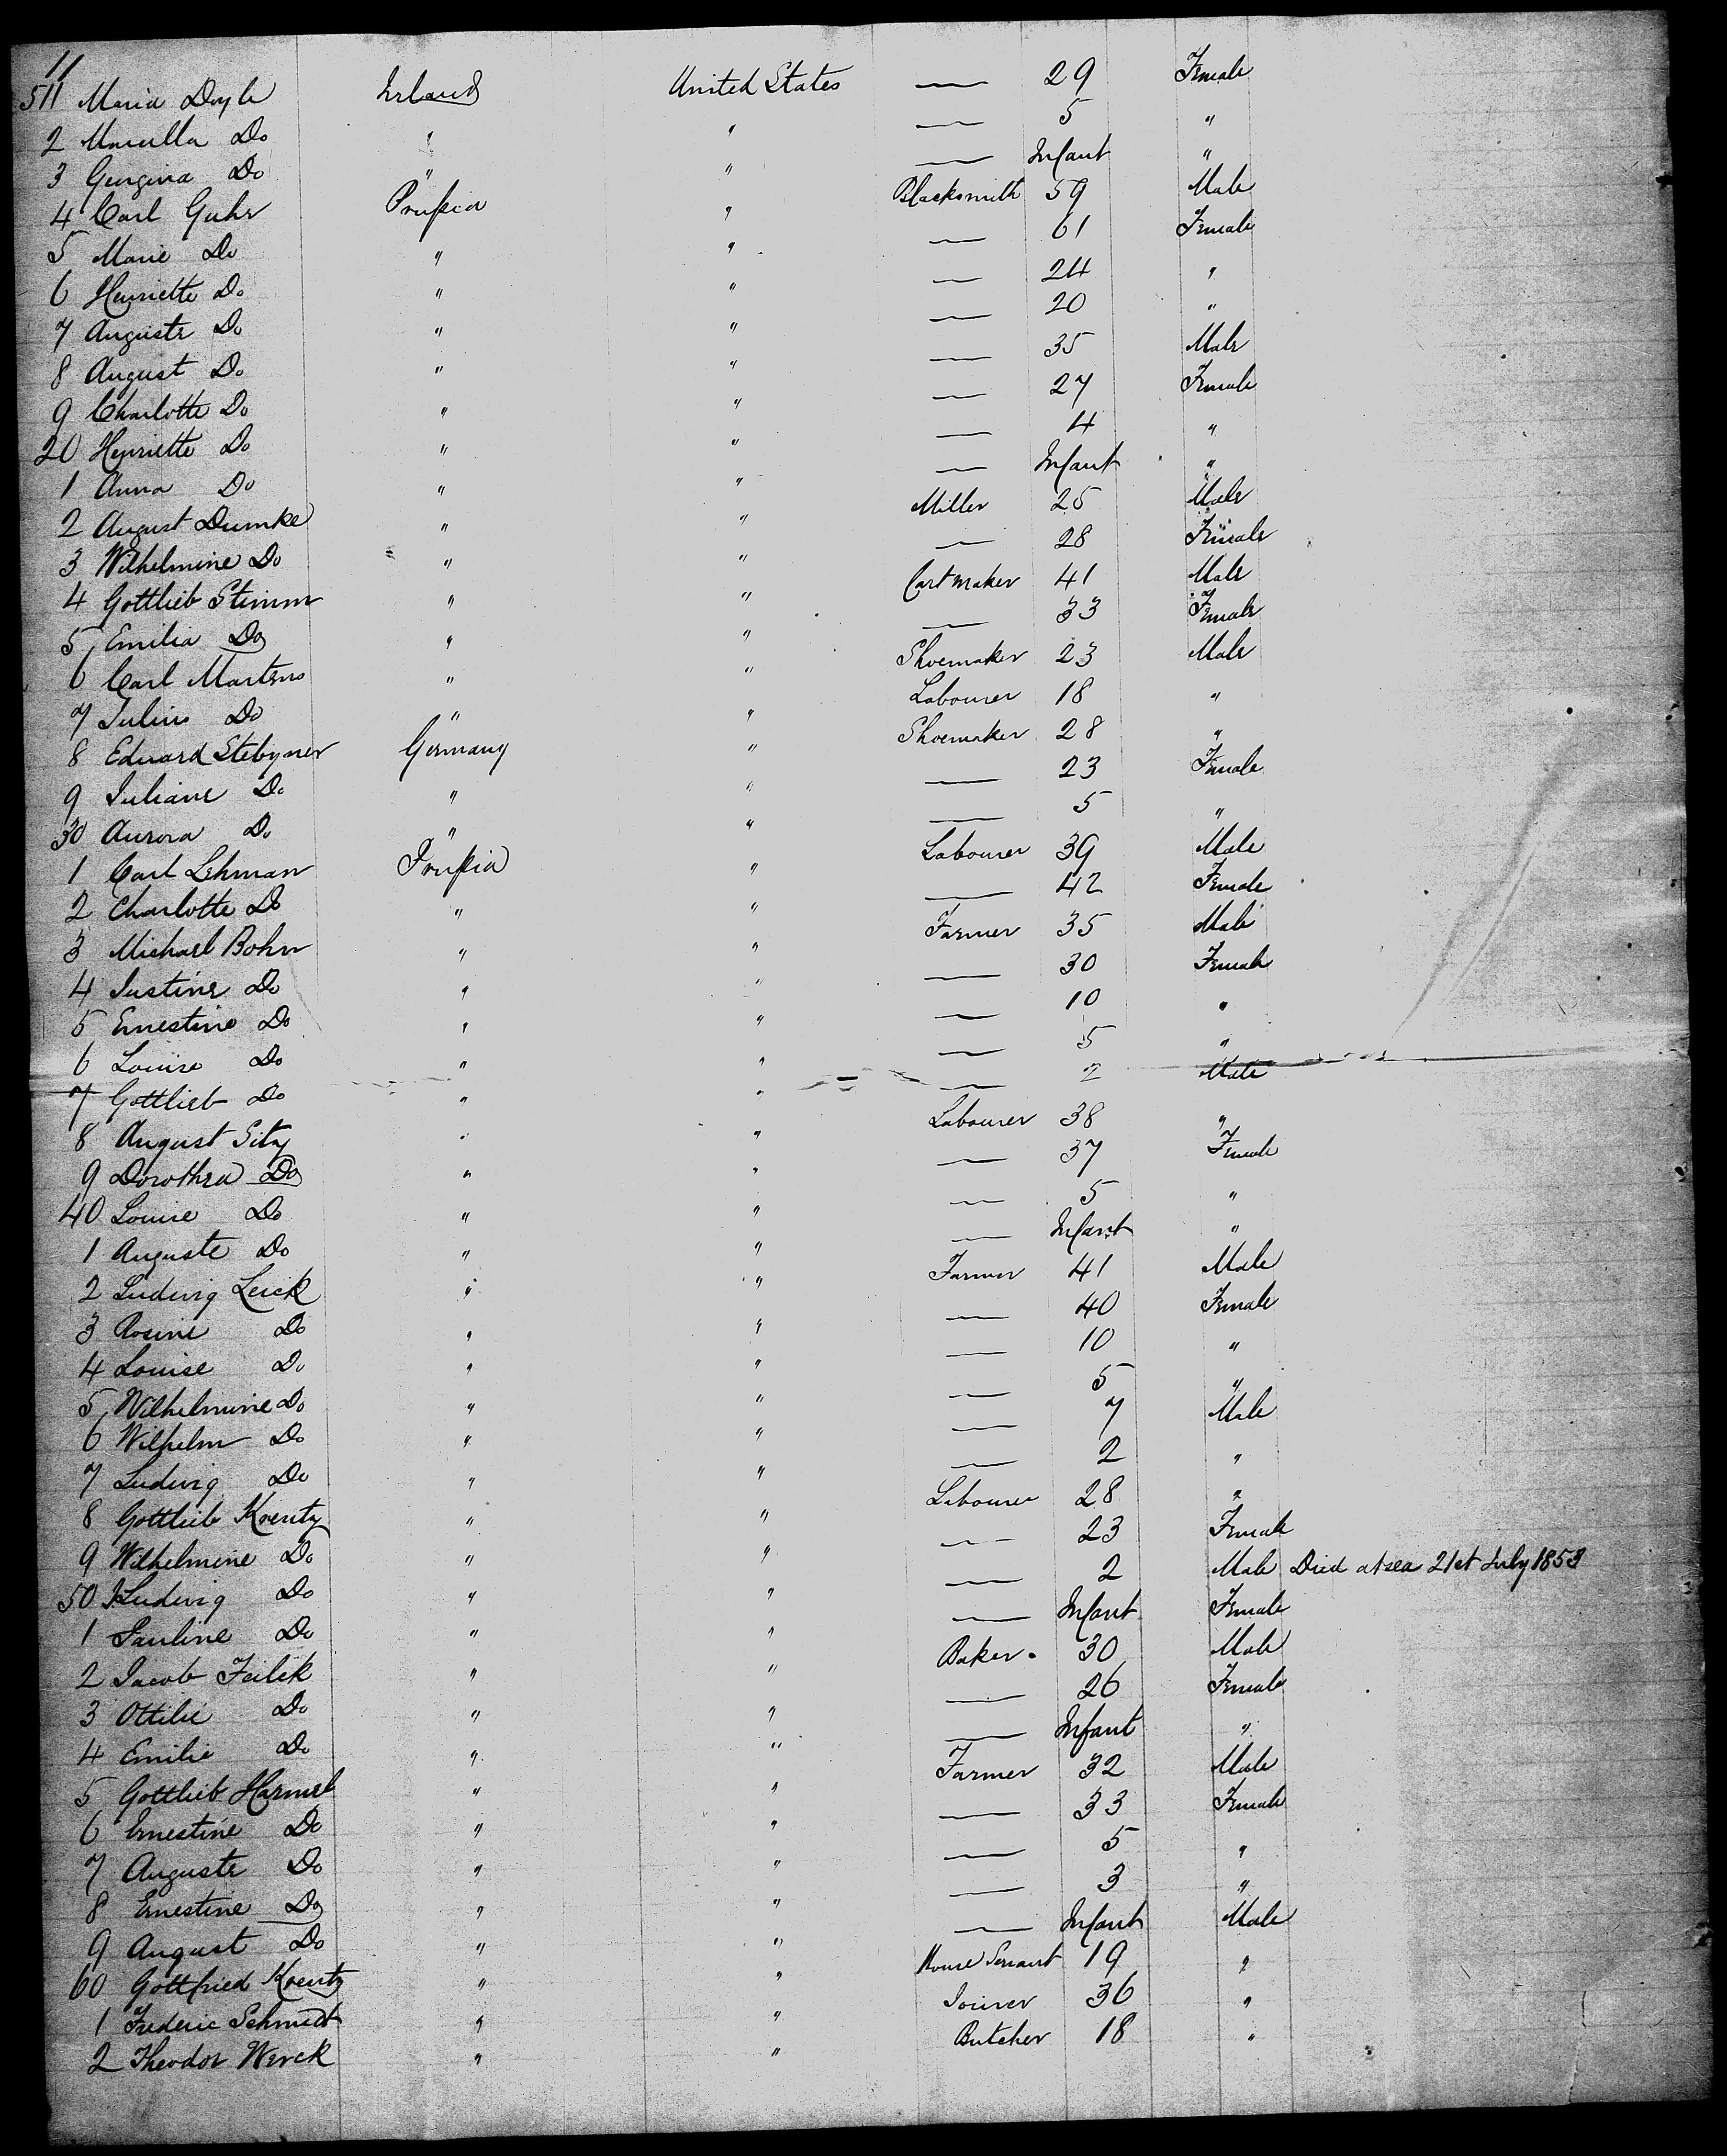 11
511 Maria Doyle Irland United States — 29 Female
2 Marcella Do " " — 5 "
3 Georgina Do " " — Infant "
4 Carl Guhr Prussia " Blacksmith 59 Male
5 Marie Do " " — 61 Female
6 Henriette Do " " — 24 "
7 Auguste Do " " — 20 "
8 August Do " " — 35 Male
9 Charlotte Do " " — 27 Female
20 Henriette Do " " — 4 "
1 Anna Do " " — Infant "
2 August Dumke " " Miller 25 Male
3 Wilhelmine Do " " — 28 Female
4 Gottlieb Stimm " " Cartmaker 41 Male
5 Emilia Do " " — 33 Female
6 Carl Martens " " Shoemaker 23 Male
7 Julius Do " " Labourer 18 "
8 Eduard Stebyner Germany " Shoemaker 28 "
9 Juliane Do " " — 23 Female
30 Aurora Do " " — 5 "
1 Carl Lehman Prussia " Labourer 39 Male
2 Charlotte Do " " — 42 Female
3 Michael Bohn " " Farmer 35 Male
4 Justine Do " " — 30 Female
5 Ernestine Do " " — 10 "
6 Louise Do " " — 5 "
7 Gottlieb Do " " — 2 Male
8 August Sitz " " Labourer 38 "
9 Dorothea Do " " — 37 Female
40 Louise Do " " — 5 "
1 Auguste Do " " — Infant "
2 Ludwig Leick " " Farmer 41 Male
3 Rosine Do " " — 40 Female
4 Louise Do " " — 10 "
5 Wilhelmine Do " " — 5 "
6 Wilhelm Do " " — 7 Male
7 Ludwig Do " " — 2 "
8 Gottlieb Krentz " " Labourer 28 "
9 Wilhelmine Do " " — 23 Female
50 Ludwig Do " " — 2 Male Died at sea 21st July 1853
1 Pauline Do " " — Infant Female
2 Jacob Feilek " " Baker 30 Male
3 Ottilie Do " " — 26 Female
4 Emilie Do " " — Infant "
5 Gottlieb Harmel " " Farmer 32 Male
6 Ernestine Do " " — 33 Female
7 Auguste Do " " — 5 "
8 Ernestine Do " " — 3 "
9 August Do " " — Infant Male
60 Gottfried Krentz " " House Servant 19 "
1 Frederic Schmidt " " Joiner 36 "
2 Theodor Werck " " Butcher 18 "